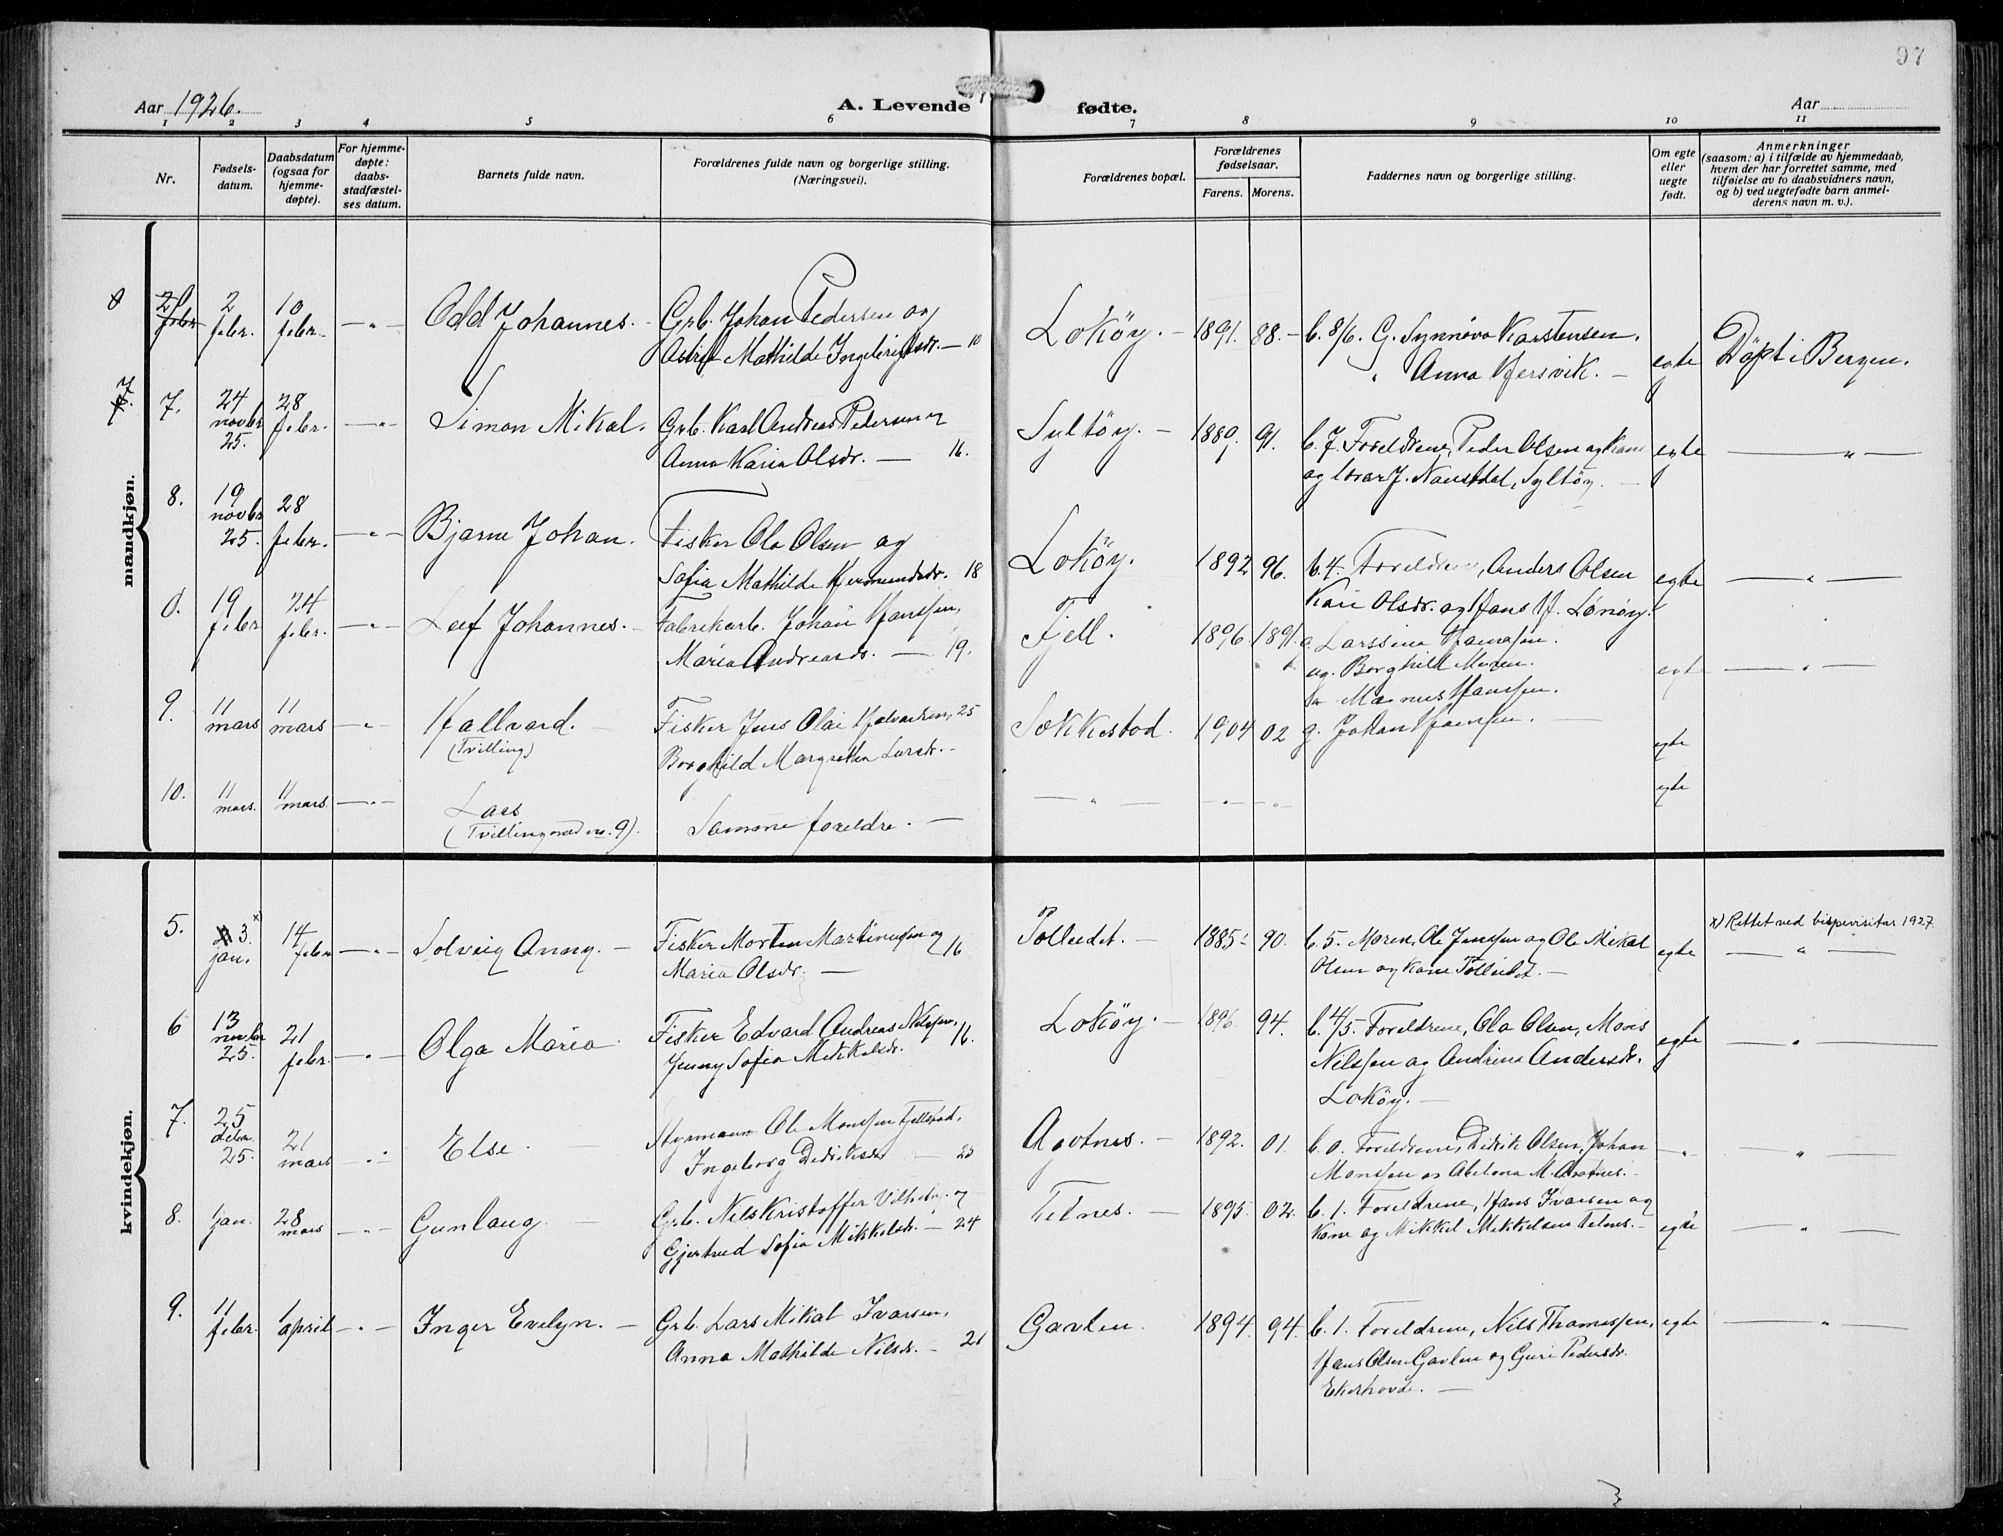 97
Aar 1926.
A. Levende fødte.
Aar
1 2 3 4 5 6 7 8 9 10 11
Nr.
Fødsels-
datum.
Daabsdatum
(ogsaa for
hjemme-
døpte).
For hjemme-
døpte:
daabs-
stadfæstel-
ses datum.
Barnets fulde navn.
Forældrenes fulde navn og borgerlige stilling.
(Næringsvei).
Forældrenes bopæl.
Forældrenes
fødselsaar.
Farens. Morens.
Faddernes navn og borgerlige stilling.
Om egte
eller
uegte
født.
Anmerkninger
(saasom: a) i tilfælde av hjemmedaab,
hvem der har forrettet samme, med
tilføielse av to daabsvidners navn,
og b) ved uegtefødte barn anmel-
derens navn m. v.).
mandkjøn.
0 2 febr. 10 febr. — " — Odd Johannes. Grb. Johan Pedersen og
Mathilde — 10
Lokøy. — 1891. 88. — b. 8/6. G. Synnøva Karstensen.
" Anna — egte Døpt i Bergen.
7. 24 novbr 25. 28 febr. — " — Simon Mikal. Grb. Karl Andreas Pedersen og
Anna Karia Olsdr. — 16.
Syltøy. — 1889 91. b. 7. Foreldrene, Peder Olsen og Kone
og lærar J. Naustdal, Syltøy. — egte — " —
8. 19 novbr 25. 28 febr. — " — Bjarne Johan. Fisker Ola Olsen og
Sofia Mathilde — 18
Lokøy. 1892 96. b. 4. Foreldrene, Anders Olsen
Kari Olsdr. og Hans H. Lønøy. egte — " —
0. 19 febr 24 febr. — " — Leif Johannes. — Fabrikarb. Johan Hanssen,
Maria Andreasdr. — 19.
Fjell. 1896. 1891. g. Larssine Hanssen.
ug. Borghild
Magnus Hanssen.
g. Johan Hanssen. egt — " —
9. 11 mars 11 mars — " Hallvard.
(Tvilling)
Fisker Jens Olai Halvorsen, 25
Borghild Margretha Larsdr. —
Sekkestad. 1904 02 egte
10. 11 mars. 11 mars — " — Lars
(Tvilling med nr. 9).
Samme foreldre. —
— " — — " — " egte
kvindekjøn.
5. 3. x) jan. 14 febr — " — Solveig Anny. — Fisker Morten Martinussen og 16
Maria Olsdr. —
Tolleidet. — 1885 90. b. 5. Moren, Ole Jenssen og Ole Mikal
Olsen og Kone Tolleidet. — egte x) Rettet ved bispevisitas 1927.
— " —
6 13 novbr 25. 21 febr. — " — Olga Maria. Fisker Edvard Andreas Nilssen, 16.
Jenny Sofia Mikkelsdr.
Lokøy. — 1896. 94. b. 4/5. Foreldrene, Ola Olsen, Mons
Nilssen og Andrina Andersdr.
Lokøy. — egte — " —
7. 25 debr. 25. 21 mars — " Else. — Styrmann Ole Monssen Fjellstad,
Ingeborg Didriksdr — 25
Agotnes. — 1892. 01. b. 0. Foreldrene, Didrik Olsen, Johan
Monssen og Abelona M. Agotnes. — — " — — " —
8. 1 jan. 28 mars — " — Gunlaug. — Grb. Nils Kristoffer og
Gjertrud Sofia Mikkelsdr. — 24
Telnes. — 1895. 02. b. 1. Foreldrene, Hans Ivarsen og
Kone og Mikkel Mikkelsen Telnes. — egte — " —
9. 11 febr. 1 april — " — Inger Evelyn. — Grb. Lars Mikal Ivarsen,
Anna Mathilde Nilsdr. — 21
Gavlen. 1894. 94. b. 1. Foreldrene, Nils Thomassen,
Hans Olsen Gavlen og Guri Pedersdr.
Ekerhovde. — egte — " —